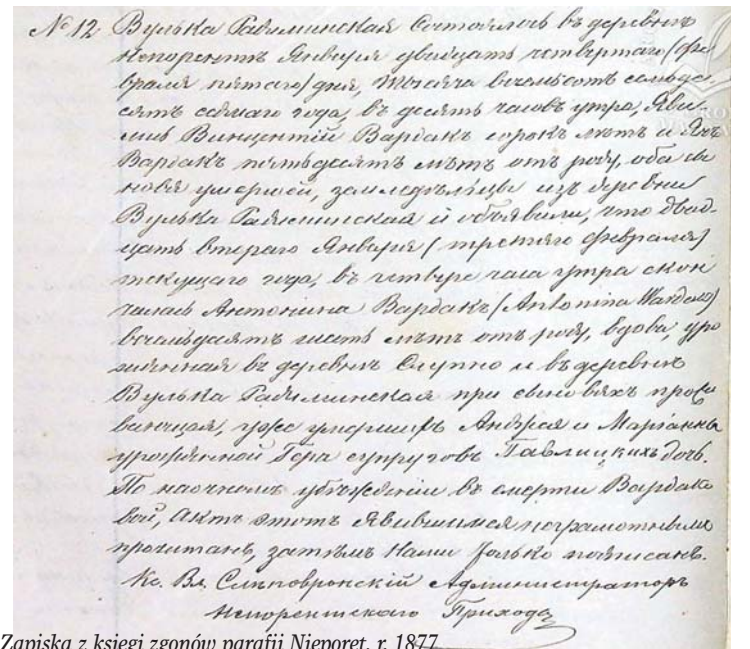 № 12 Вулька Радзиминская Состоялось въ деревнѣ
Непорентъ Января двадцать четвертаго /фе-
враля пятаго/ дня, тысяча восемьсотъ семьде-
сятъ седьмаго года, въ десять часовъ утра, Яви-
лись Винцентій Вардакъ сорокъ лѣтъ и Янъ
Вардакъ пятьдесятъ лѣтъ отъ роду, оба сы-
новья умершей, земледѣльцы изъ деревни
Вулька Радзиминская и объявили, что двад-
цать втораго Января /третьяго февраля/
текущаго года, въ четыре часа утра скон-
чалась Антонина Вардакъ /Antonina Wardak/
восемьдесятъ лѣтъ отъ роду, вдова, уро-
жденная въ деревнѣ Слупно и въ деревнѣ
Вулька Радзиминская при сыновьяхъ прожи-
вающая, уже умершихъ Андрея и Маріанны
урожденной Гора супруговъ Павлицкихъ дочь.
По наочномъ убѣжденіи въ смерти Вардако-
вой, Актъ этотъ Явившимся неграмотнымъ
прочитанъ, затѣмъ Нами только подписанъ.
Кс. Вл. Слѣповронскій Администраторъ
Непорентскаго Прихода
Zapiska z księgi zgonów parafii Nieporęt, r. 1877